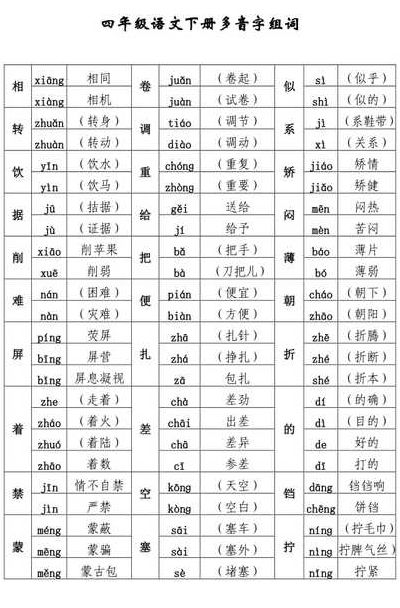 四年级语文下册多音字组词
相 xiāng 相同 卷 juǎn （卷起） 似 sì （似乎）
xiàng 相机 juàn （试卷） shì （似的）
转 zhuǎn （转身） 调 tiáo （调节） 系 jì （系鞋带）
zhuàn （转动） diào （调动） xì （关系）
饮 yǐn （饮水） 重 chóng （重复） 矫 jiáo 矫情
yìn （饮马） zhòng （重要） jiǎo 矫健
据 jū （拮据） 给 gěi 送给 闷 mēn 闷热
jù （证据） jǐ 给予 mèn 苦闷
削 xiāo 削苹果 把 bǎ （把手） 薄 báo 薄片
xuē 削弱 bà （刀把儿） bó 薄弱
难 nán （困难） 便 pián （便宜） 朝 cháo （朝下）
nàn （灾难） biàn （方便） zhāo （朝阳）
屏 píng 荧屏 扎 zhā （扎针） 折 zhē （折腾）
bīng 屏营 zhá （挣扎） zhé （折断）
bǐng 屏息凝视 zā 包扎 shé （折本）
着 zhe （走着） 差 chà 差劲 的 dí （的确）
zháo （着火） chāi 出差 dì （目的）
zhuó （着陆） chā 差异 de 好的
zhāo 着数 cī 参差 dī 打的
禁 jīn 情不自禁 空 kōng （天空） 铛 dāng 铛铛响
jìn 严禁 kòng （空白） chēng 饼铛
蒙 méng 蒙蔽 塞 sāi （塞车） 拧 níng （拧毛巾）
mēng 蒙骗 sài （塞外） nìng 拧脾气丝）
měng 蒙古包 sè （堵塞） nǐng 拧紧